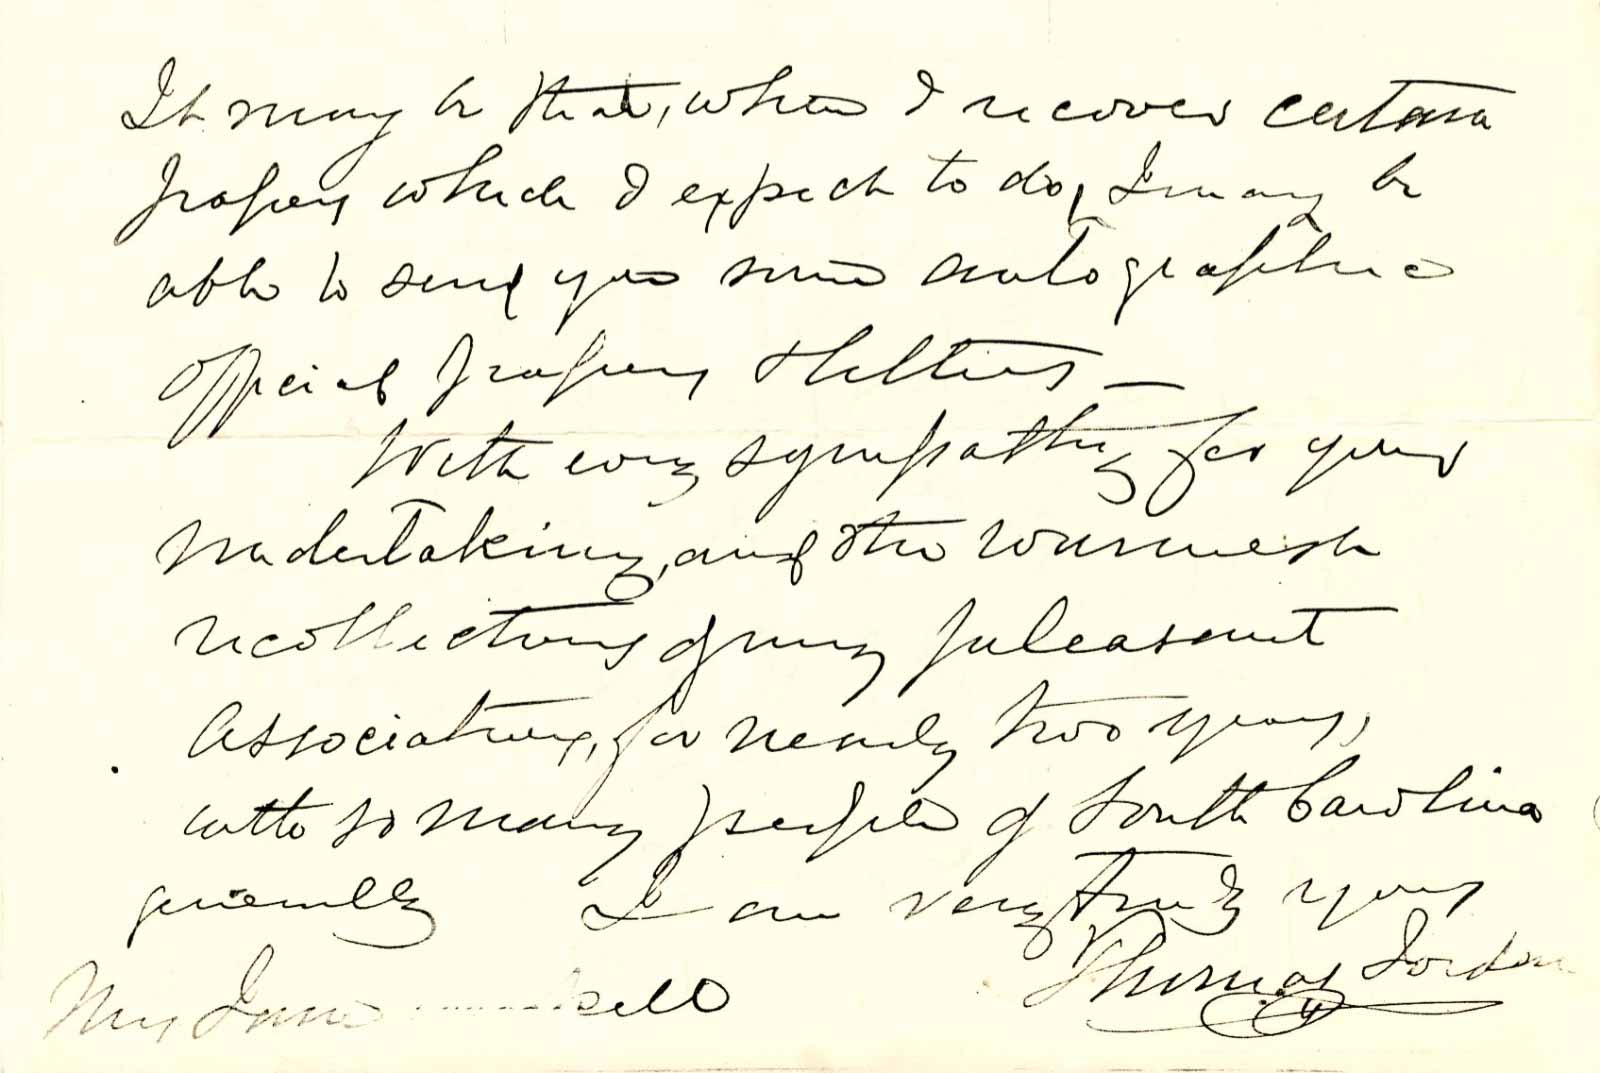 It may be that, when I recover certain
papers which I expect to do, I may be
able to send you some autographic
official papers & letters —
With every sympathy for your
undertaking, and the warmest
recollections of my pleasant
association, for nearly two years,
with so many people of South Carolina
generally I am very truly yours
Thomas Jordan